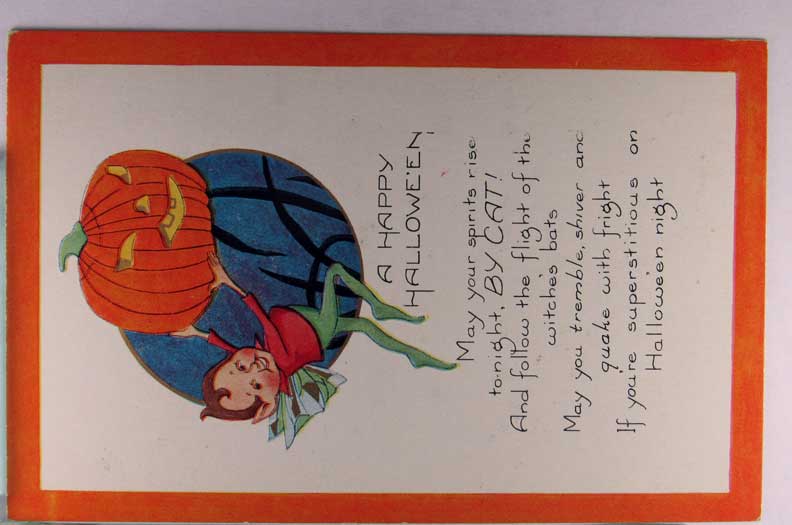 A HAPPY
HALLOWE'EN,
May your spirits rise
to-night, BY CAT!
And follow the flight of the
witche's bats
May you tremble, shiver and
quake with fright
If you're superstitious on
Hallowe'en night